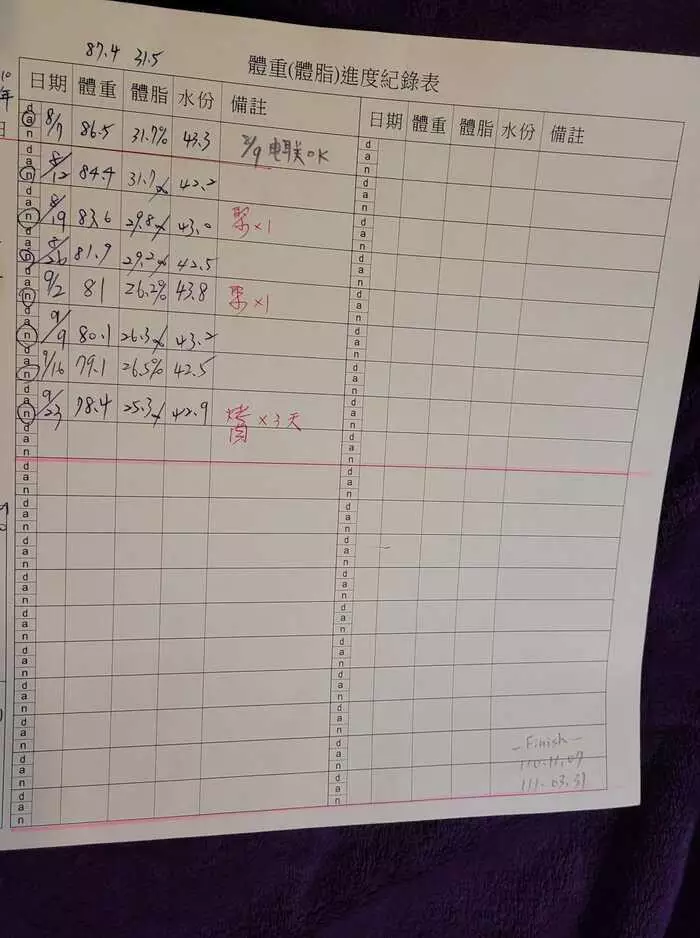 87.4 31.5
體重(體脂)進度紀錄表
日期 體重 體脂 水份 備註 日期 體重 體脂 水份 備註
8/7 86.5 31.7% 43.3 8/9 电联OK
8/12 84.4 31.7% 42.2
8/19 83.6 29.8% 43.0 聚×1
8/26 81.9 29.2% 42.5
9/2 81 26.2% 43.8 聚×1
9/9 80.1 26.3% 43.2
9/16 79.1 26.5% 42.5
9/23 78.4 25.3% 42.9 烤肉×3天
-Finish-
110.11.07
111.03.31